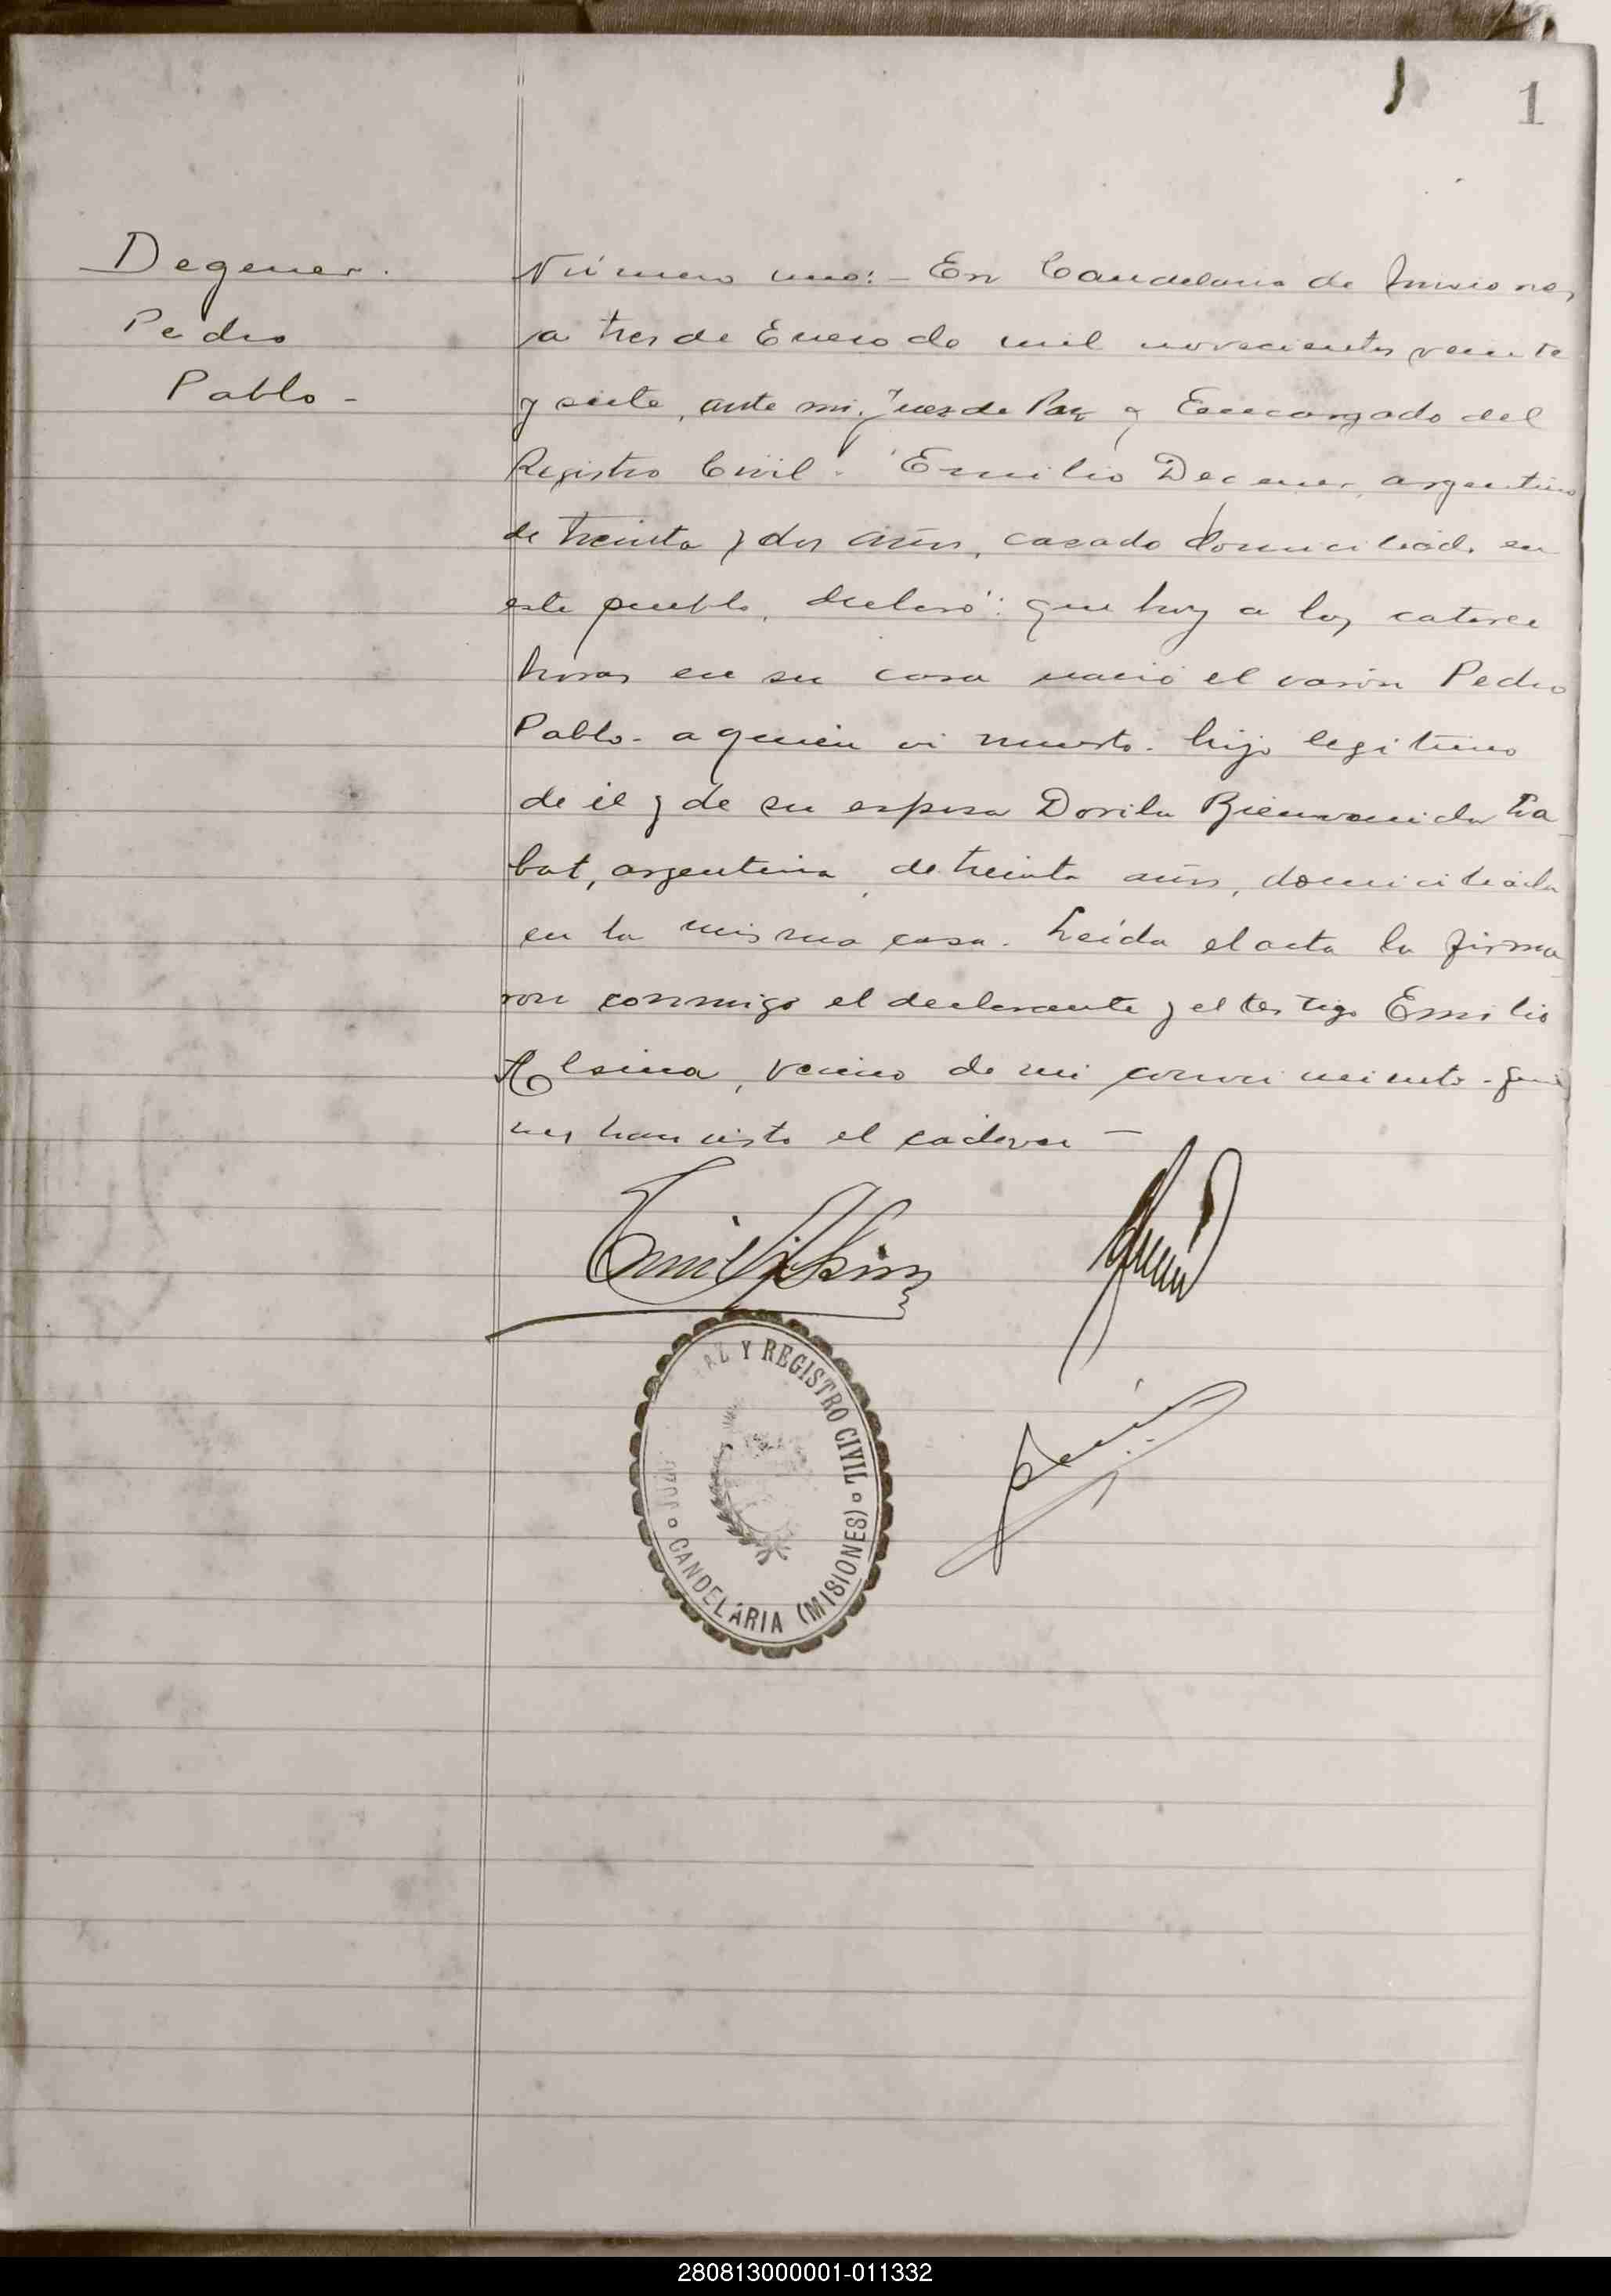 1
Degener.
Pedro
Pablo -
Número uno: - En Candelaria de Misiones
a tres de Enero de mil novecientos veinte
y siete, ante mi, Juez de Paz y Encargado del
Registro Civil - Emilio Degener, argentino
de treinta y dos años, casado domiciliado en
este pueblo, declaró: que hoy a las catorce
horas en su casa nació el varón Pedro
Pablo - a quien vi muerto - hijo legitimo
de él y de su esposa Dorila Bienvenida La-
bat, argentina, de treinta años, domiciliada
en la misma casa. Leída el acta la firma-
ron conmigo el declarante y el testigo Emilio
Alsina, vecino de mi conocimiento - quie
nes han visto el cadaver -
Emilio Alsina
AZ Y REGISTRO CIVIL
CANDELARIA (MISIONES)
280813000001-011332